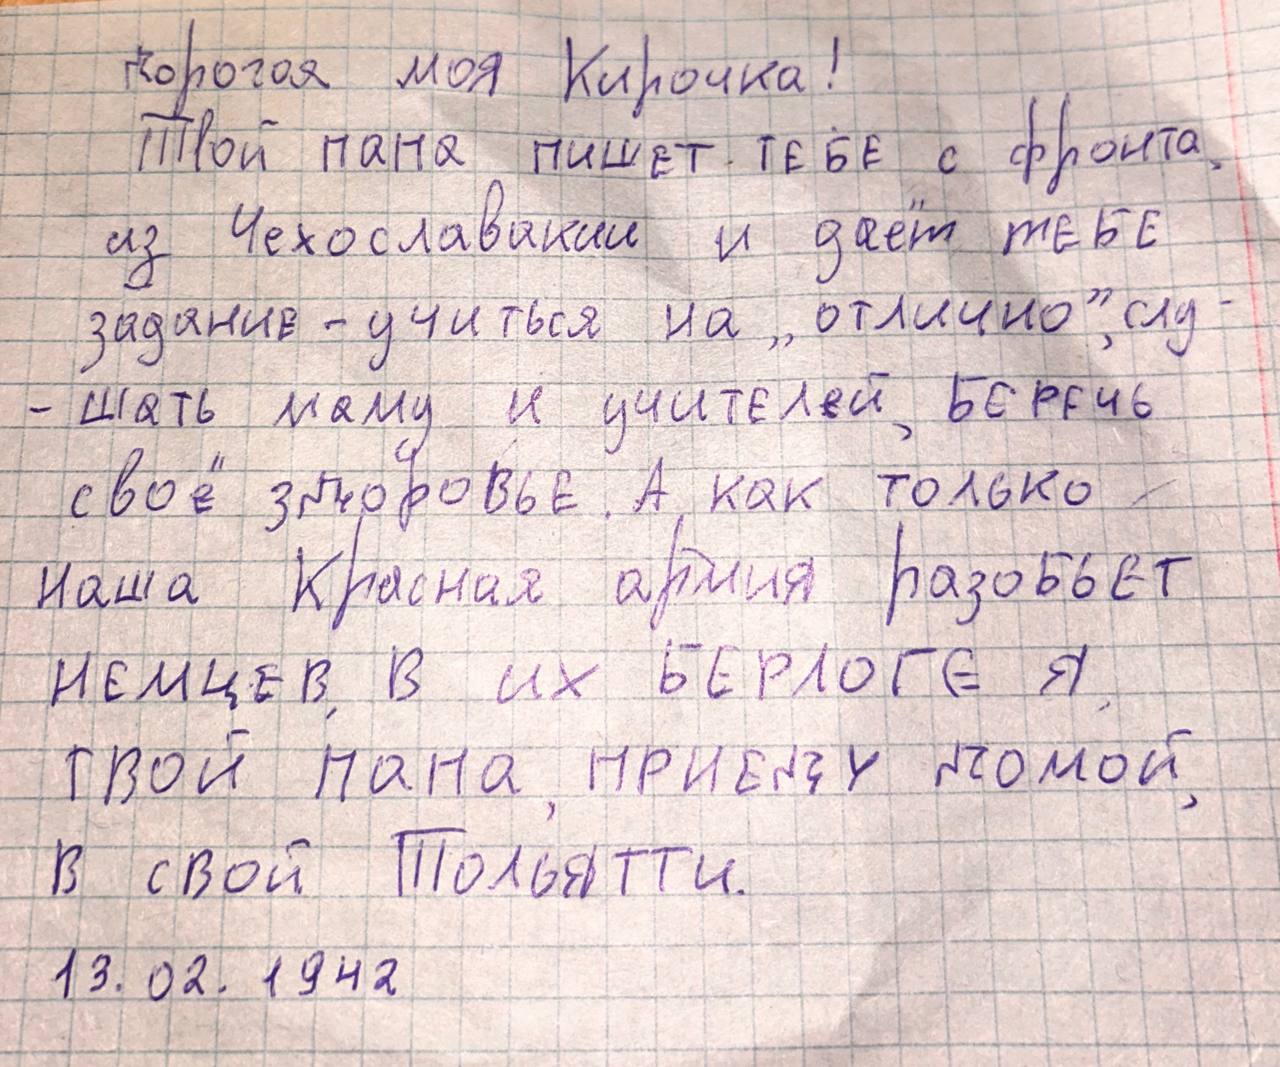 Дорогая моя Кирочка!
Твой папа пишет тебе с фронта,
из Чехославакии и даёт тебе
задание - учиться на „отлично”, слу-
- шать маму и учителей, беречь
своё здоровье. А как только
наша Красная армия разобьет
немцев, в их берлоге я,
твой папа, приезду домой,
в свой Тольятти.
13.02.1942